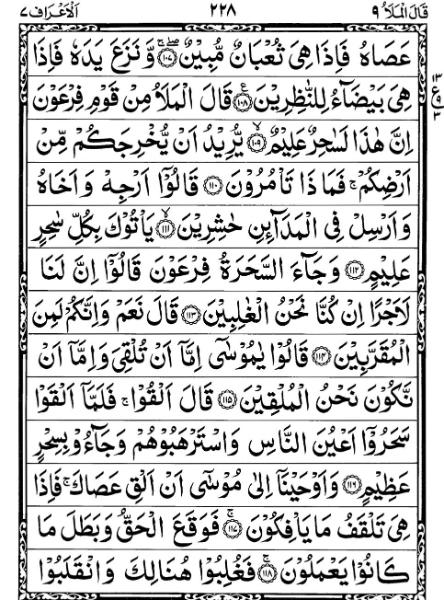 قَالَ الْمَلَاُ ٩ ٢٢٨ اَلْاَعْرَاف ٧
عَصَاهُ فَاِذَا هِىَ ثُعْبَانٌ مُّبِيْنٌ ۝١٠٧ وَّنَزَعَ يَدَهٗ فَاِذَا
هِىَ بَيْضَآءُ لِلنّٰظِرِيْنَ ۝١٠٨ قَالَ الْمَلَاُ مِنْ قَوْمِ فِرْعَوْنَ
اِنَّ هٰذَا لَسٰحِرٌ عَلِيْمٌ ۝١٠٩ يُّرِيْدُ اَنْ يُّخْرِجَكُمْ مِّنْ
اَرْضِكُمْ ۚ فَمَا ذَا تَاْمُرُوْنَ ۝١١٠ قَالُوْٓا اَرْجِهْ وَ اَخَاهُ
وَ اَرْسِلْ فِى الْمَدَآئِنِ حٰشِرِيْنَ ۝١١١ يَاْتُوْكَ بِكُلِّ سٰحِرٍ
عَلِيْمٍ ۝١١٢ وَجَآءَ السَّحَرَةُ فِرْعَوْنَ قَالُوْٓا اِنَّ لَنَا
لَاَجْرًا اِنْ كُنَّا نَحْنُ الْغٰلِبِيْنَ ۝١١٣ قَالَ نَعَمْ وَاِنَّكُمْ لَمِنَ
الْمُقَرَّبِيْنَ ۝١١٤ قَالُوْا يٰمُوْسٰٓى اِمَّآ اَنْ تُلْقِىَ وَاِمَّآ اَنْ
نَّكُوْنَ نَحْنُ الْمُلْقِيْنَ ۝١١٥ قَالَ اَلْقُوْا ۚ فَلَمَّآ اَلْقَوْا
سَحَرُوْٓا اَعْيُنَ النَّاسِ وَاسْتَرْهَبُوْهُمْ وَجَآءُوْ بِسِحْرٍ
عَظِيْمٍ ۝١١٦ وَاَوْحَيْنَآ اِلٰى مُوْسٰٓى اَنْ اَلْقِ عَصَاكَ ۚ فَاِذَا
هِىَ تَلْقَفُ مَا يَاْفِكُوْنَ ۝١١٧ فَوَقَعَ الْحَقُّ وَبَطَلَ مَا
كَانُوْا يَعْمَلُوْنَ ۝١١٨ فَغُلِبُوْا هُنَالِكَ وَانْقَلَبُوْا
١٣
ع
٣